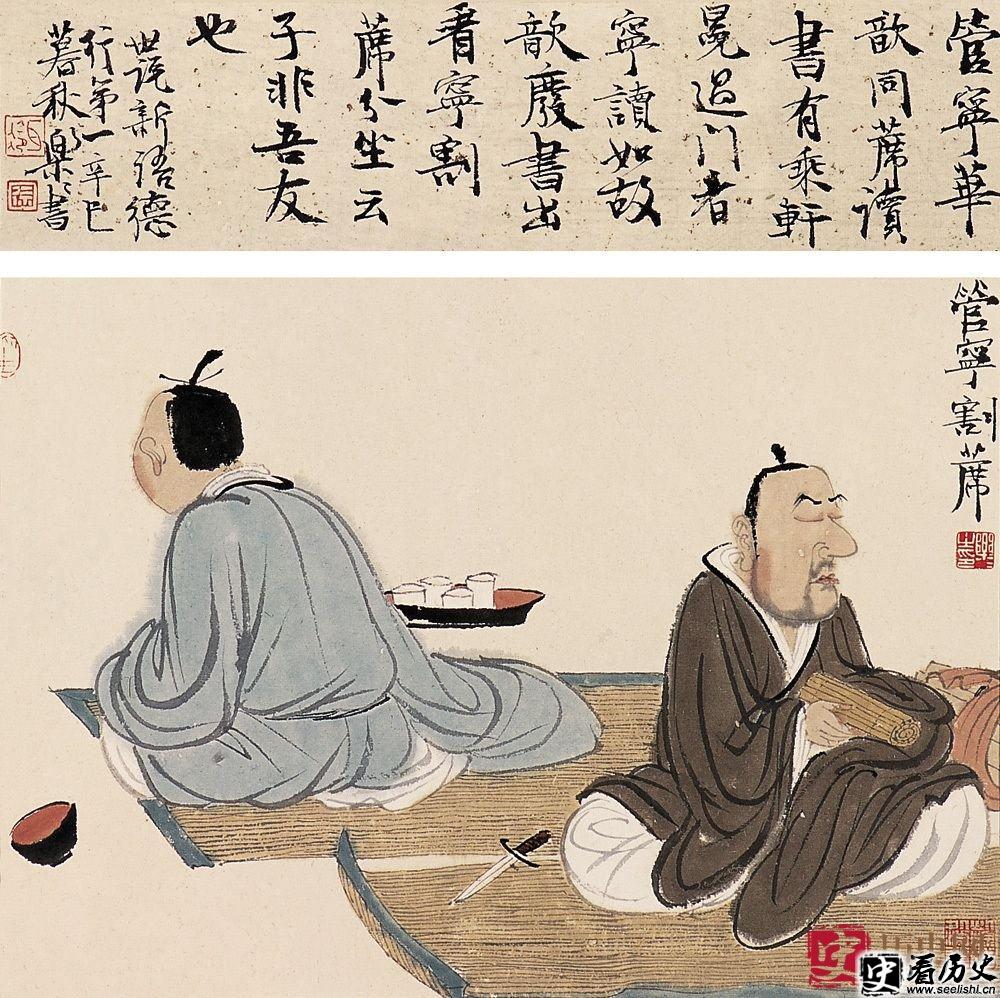 管寧華
歆同蓆讀
書有乘軒
冕過門者
寧讀如故
歆廢書出
看寧割
蓆分坐云
子非吾友
也
世說新語德
行第一辛巳
暮秋樂書
管寧割蓆
史看历史
www.seelishi.cn